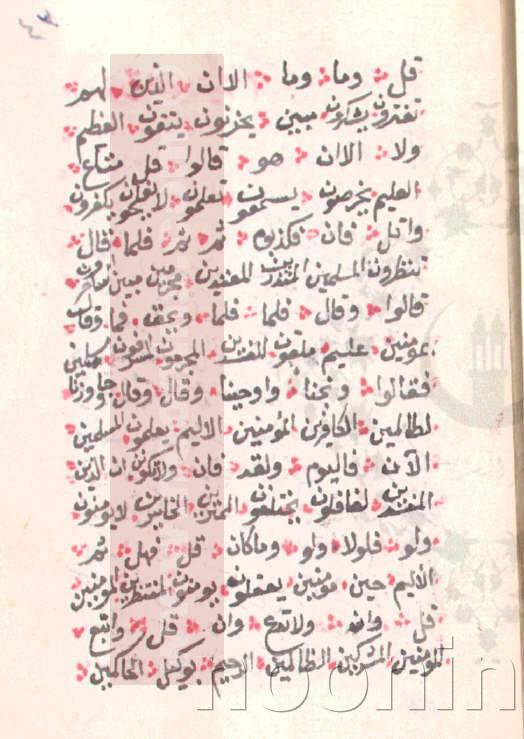 قل وما وما الا ان الذين لهم
تفترون يشكرون مبين يحزنون يتقون العظيم
ولا الا ان هو قالوا قل متاع
العليم يخرصون يسمعون تعلمون لا يفلحون يكفرون
واتل فان فكذبوه ثم ثم فلما قال
تنظرون المسلمين المنذرين المعتدين مجرمين مبين ساحرون
قالوا وقال فلما فلما ويحق فما وقال
بمومنين عليم ملقون المفسدين المجرمون مسلمين
فقالوا ونجنا واوحينا وقال وقال وجاوزنا
الظالمين الكافرين المؤمنين الاليم يعلمون المسلمين
الآن فاليوم ولقد فان ولا تكونن ان الذين
المفسدين لغافلون يختلفون الممترين الخاسرين لا يومنون
ولو فلولا ولو وما كان قل فهل ثم
الاليم حين مومنين يعقلون يومنون المنتظرين المومنين
قل وان ولا تدع وان قل واتبع
المومنين المشركين الظالمين الرحيم بوكيل الحاكمين